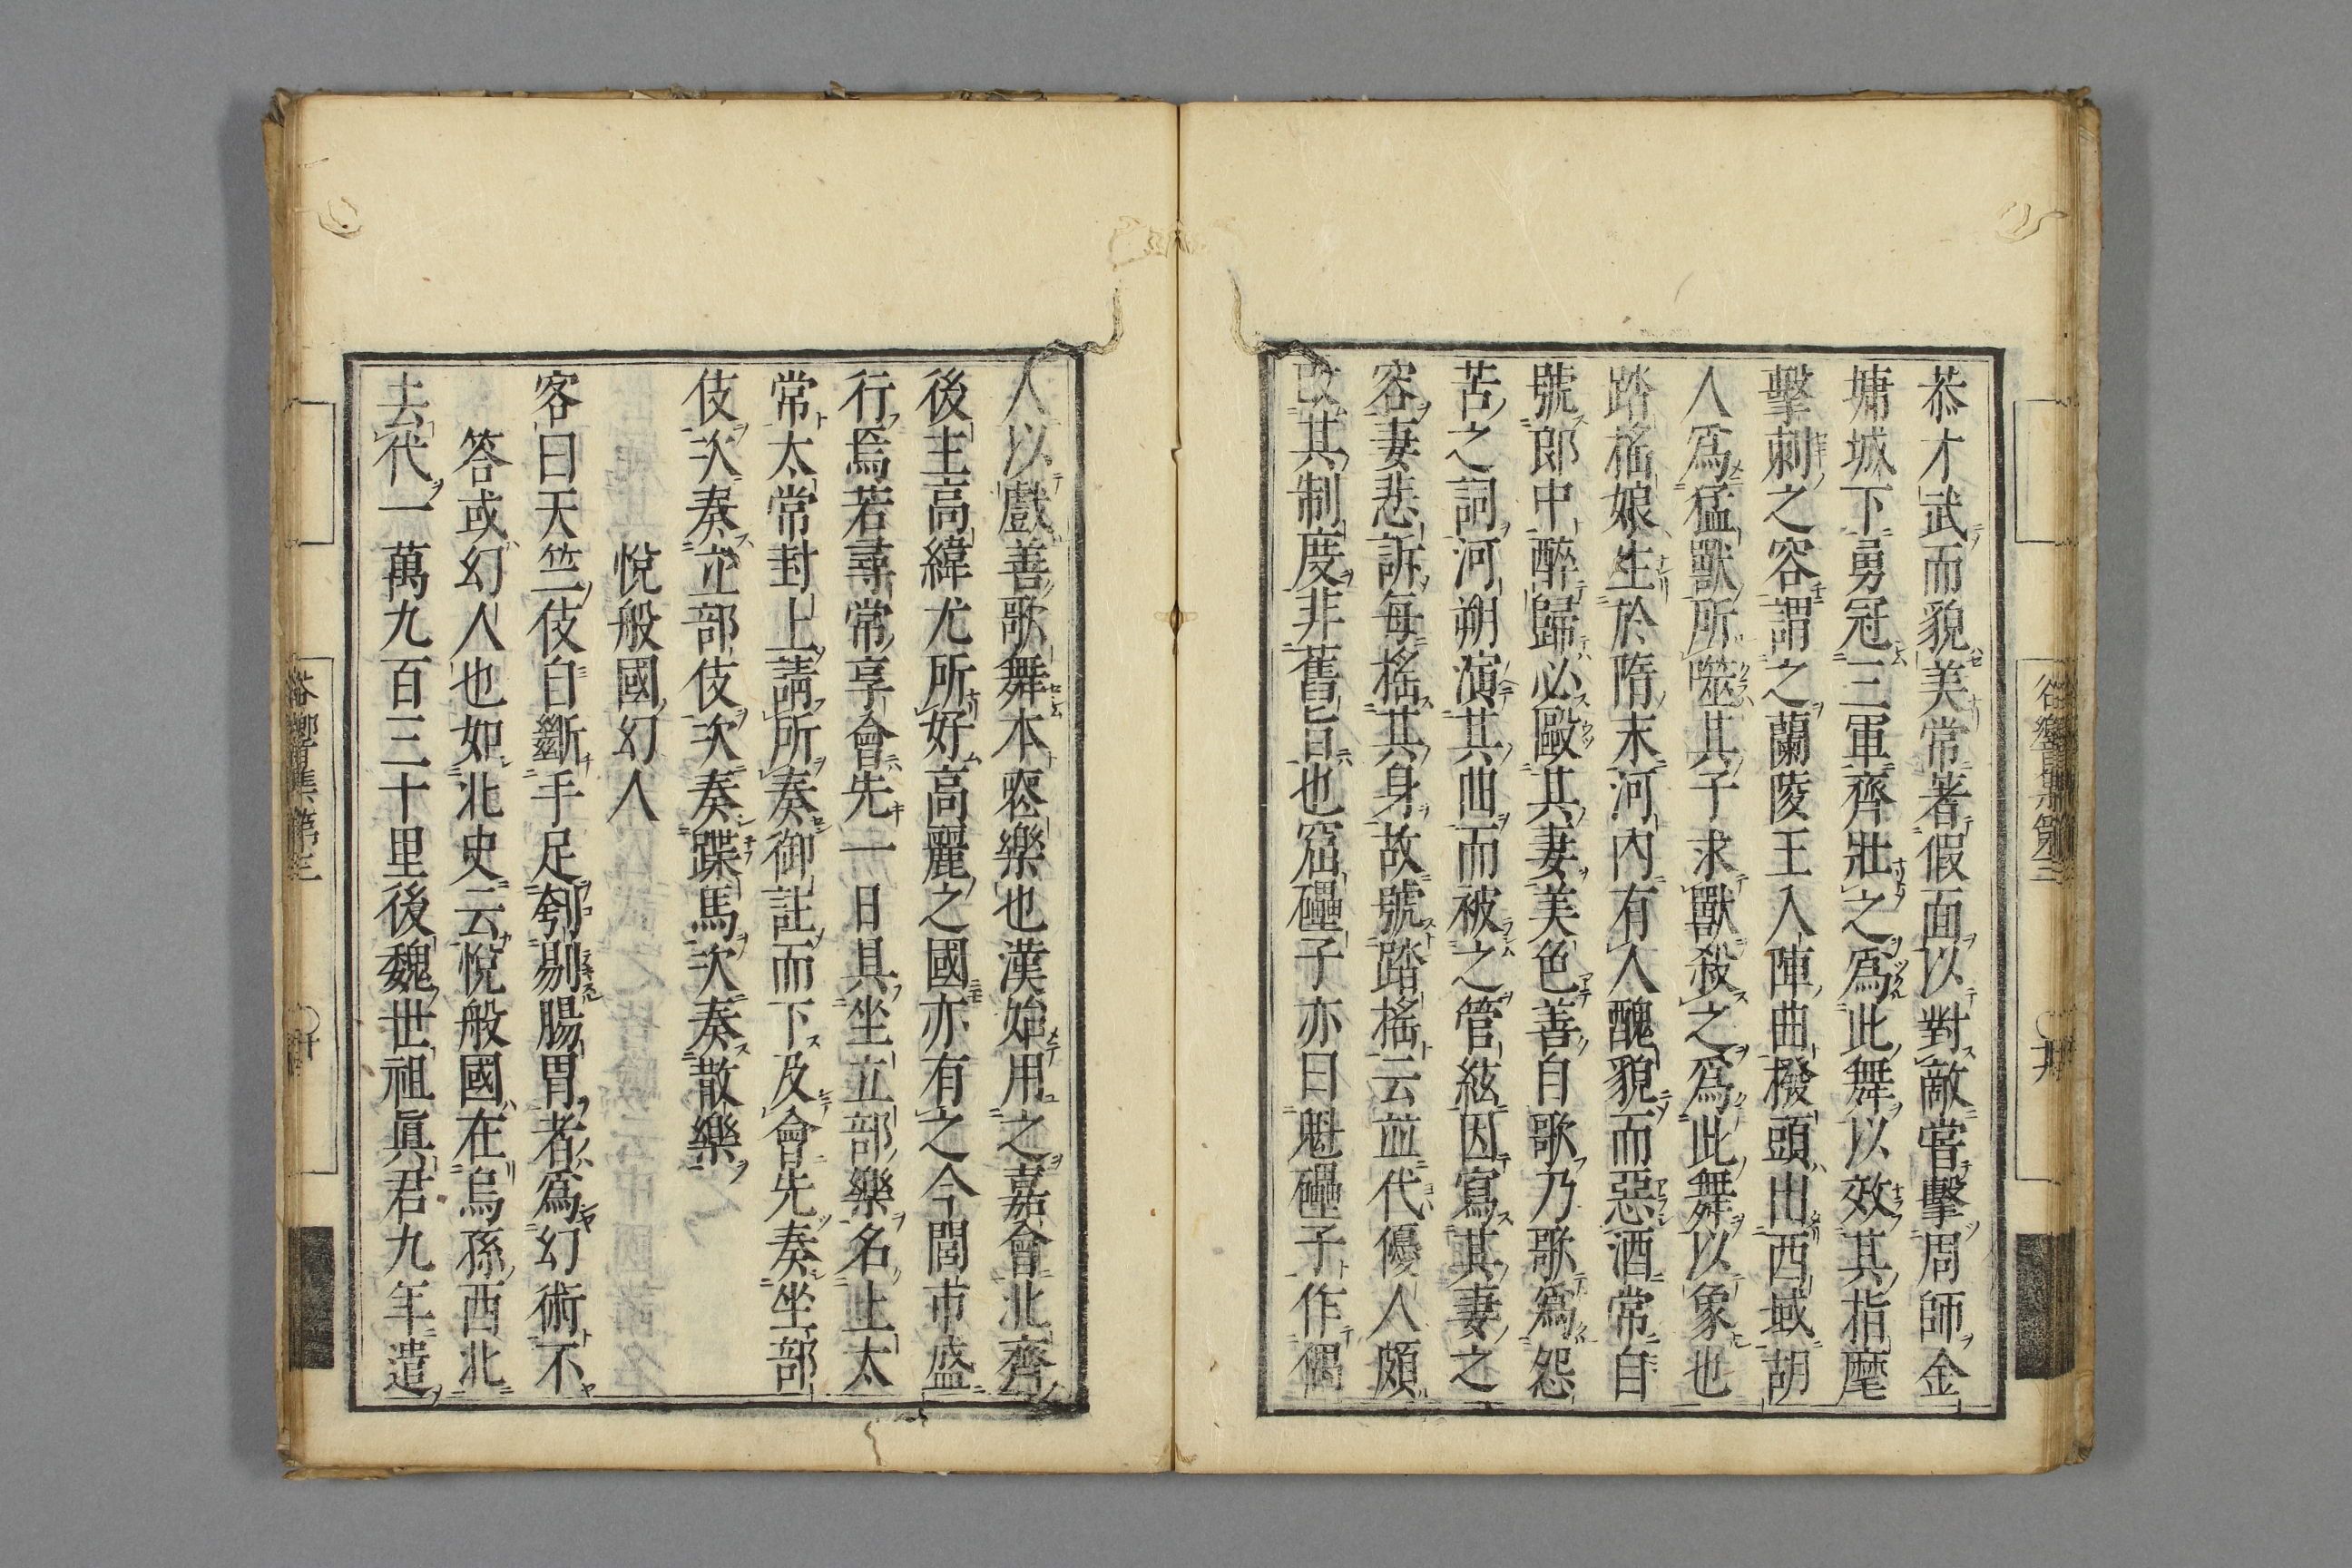 恭才武而貌美常著假面以對敵嘗擊周師金
墉城下勇冠三軍齊壯之爲此舞以效其指麾
擊刺之容謂之蘭陵王入陣曲撥頭出西域胡
人爲猛獸所噬其子求獸殺之爲此舞以象也
踏搖娘生於隋末河內有人醜貌而惡酒常自
號郎中醉歸必毆其妻美色善自歌乃歌爲怨
苦之詞河朔演其曲而被之管絃因寫其妻之
容妻悲訴每搖其身故號踏搖云並代優人頗
改其制度非舊旨也窟礧子亦曰魁礧子作偶
人以戲善歌舞本喪樂也漢始用之嘉會北齊
後主高緯尤所好高麗之國亦有之今閭市盛
行焉若尋常享會先一日具坐立部樂名上太
常太常封上請所奏御註而下及會先奏坐部
伎次奏立部伎次奏蹀馬次奏散樂
悅般國幻人
客曰天竺伎自斷手足刳剔腸胃者爲幻術不
答或幻人也如北史云悅般國在烏孫西北
去代一萬九百三十里後魏世祖眞君九年遣